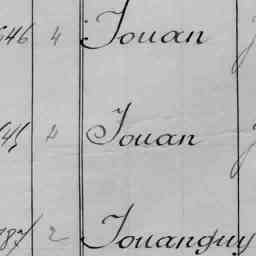 646 4 Jouan J
645 4 Jouan J
787 2 Jouanguy